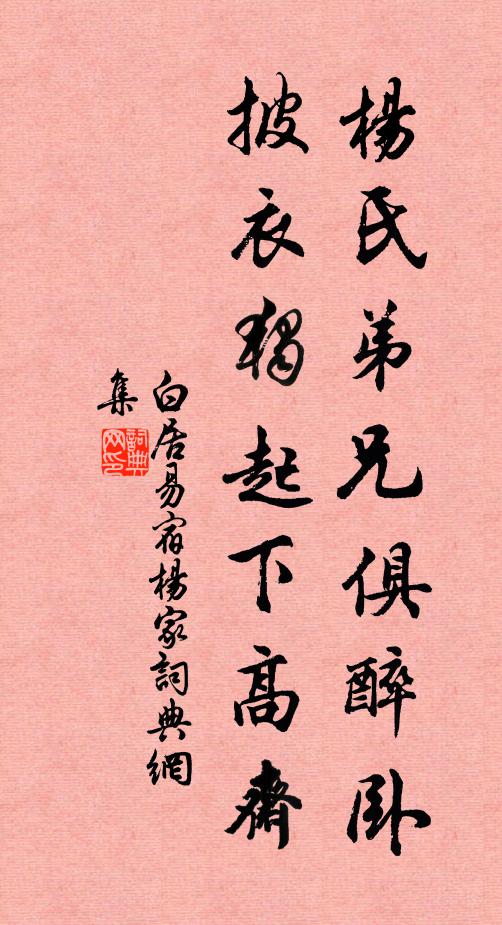 楊氏弟兄俱醉卧
披衣獨起下高齋
白居易宿楊家詞典網
集
詞典網印